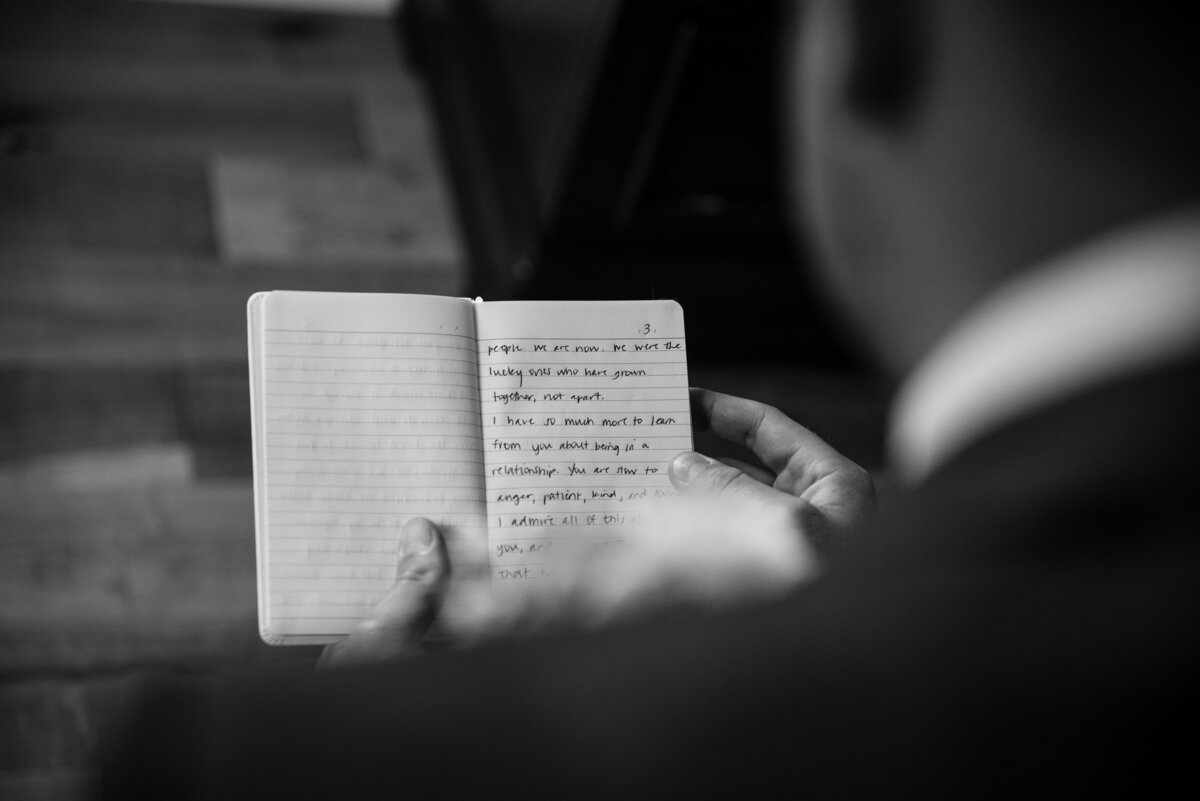 .3.
people we are now. We were the
lucky ones who have grown
together, not apart.
I have so much more to learn
from you about being in a
relationship. You are slow to
anger, patient, kind, and
I admire all of this
you, and
that